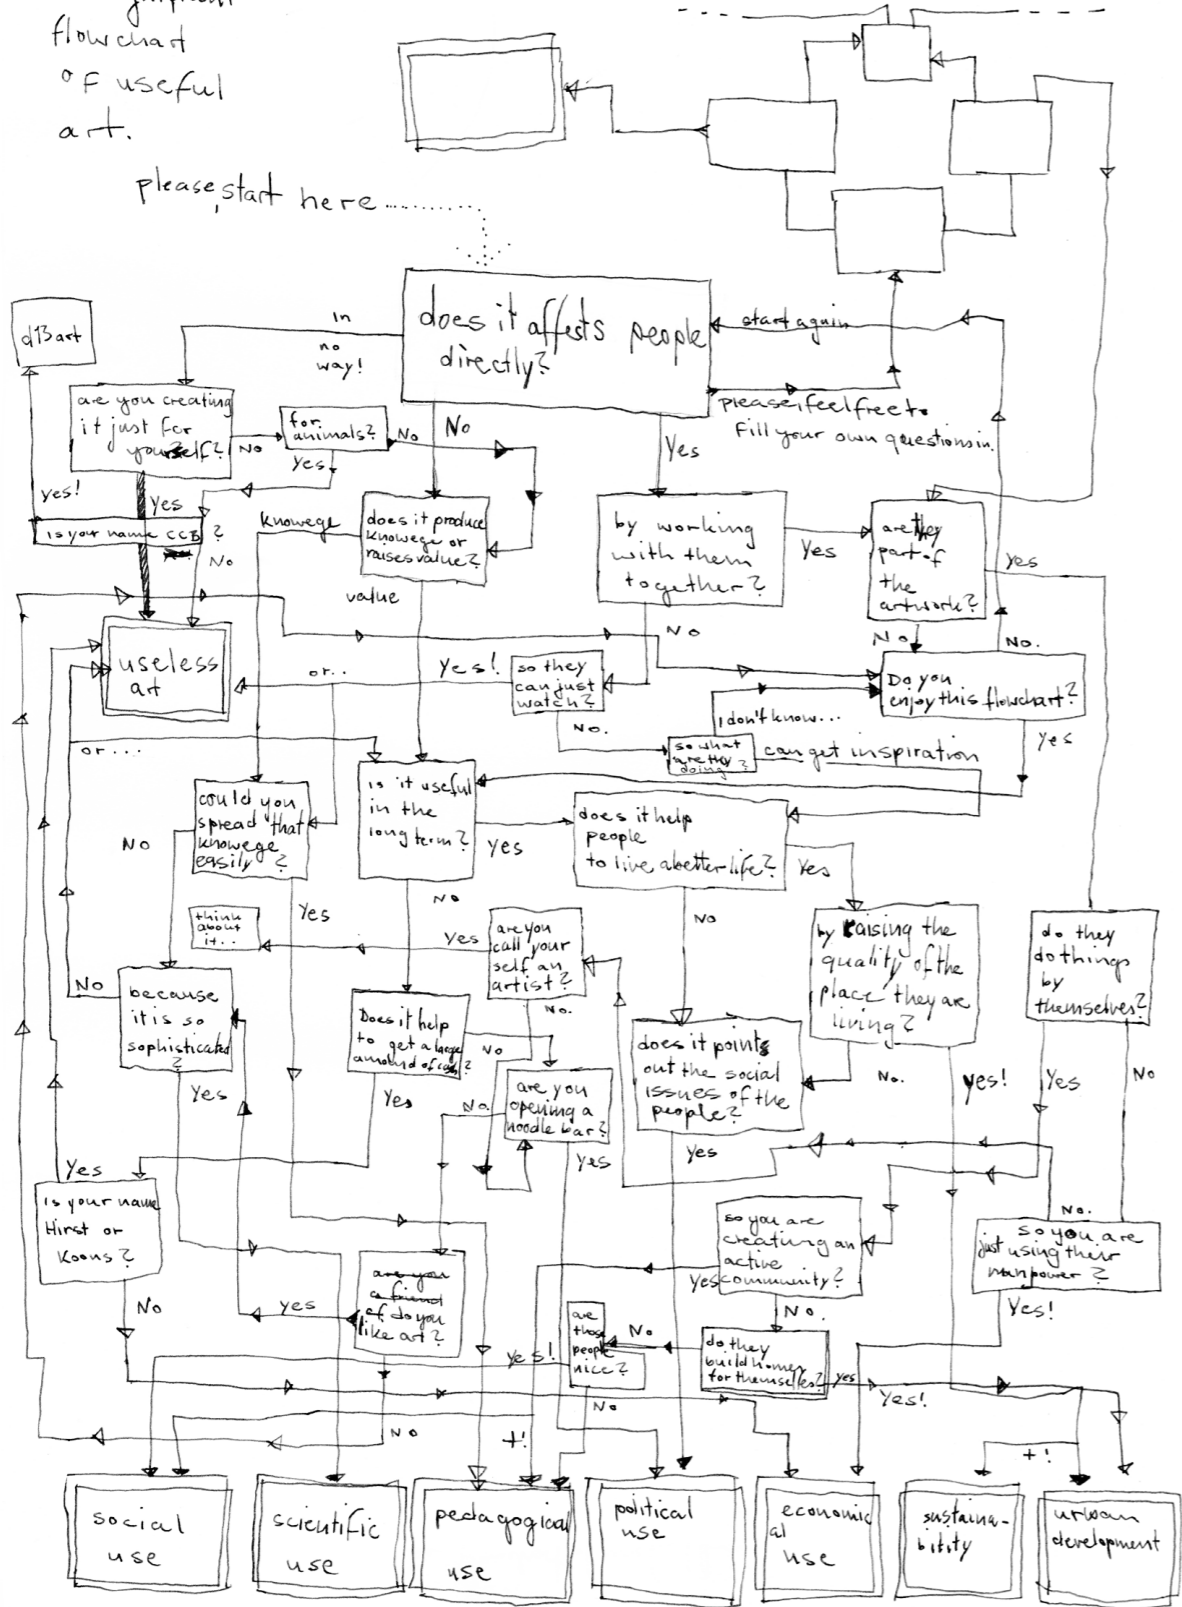 flowchart
of useful
art.
please, start here
does it affects people
directly?
In
no
way!
No
Yes
start again
please, feel free to
fill your own questions in.
d13art
are you creating
it just for
yourself?
No
for
animals?
No
Yes
yes!
Yes
is your name CCB ?
No
knowege
does it produce
knowege or
raises value?
value
by working
with them
together?
Yes
No
are they
part of
the
artwork?
yes
No
No.
useless
art
or...
Yes!
so they
can just
watch?
No.
Do you
enjoy this flowchart?
yes
I don't know...
so what
are they
doing?
can get inspiration
or...
could you
spread that
knowege
easily?
No
Yes
is it useful
in the
long term?
yes
No
does it help
people
to live a better life?
Yes
No
think
about
it..
Yes
are you
call your
self an
artist?
No.
by raising the
quality of the
place they are
living?
No.
yes!
do they
do things
by
themselves?
Yes
No
No
because
it is so
sophisticated
?
Yes
Does it help
to get a large
amound of cash?
No
Yes
are you
opening a
noodle bar?
No.
yes
does it points
out the social
issues of the
people?
Yes
Yes
is your name
Hirst or
Koons?
No
are you
a friend
of do you
like art?
yes
No
so you are
creating an
active
community?
yes
No.
No.
so you are
just using their
manpower?
Yes!
are
those
people
nice?
yes!
No
No
do they
build homes
for themselles?
yes
Yes!
+!
+!
social
use
scientific
use
pedagogical
use
political
use
economic
al
use
sustaina-
bitity
urban
development